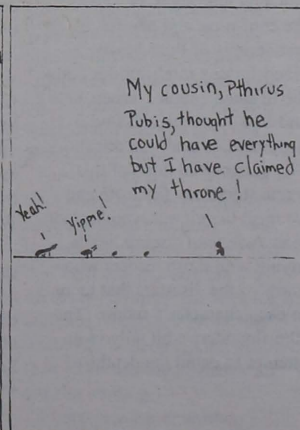 My cousin, Pthirus
Pubis, thought he
could have everything
but I have claimed
my throne!
Yeah!
Yippie!